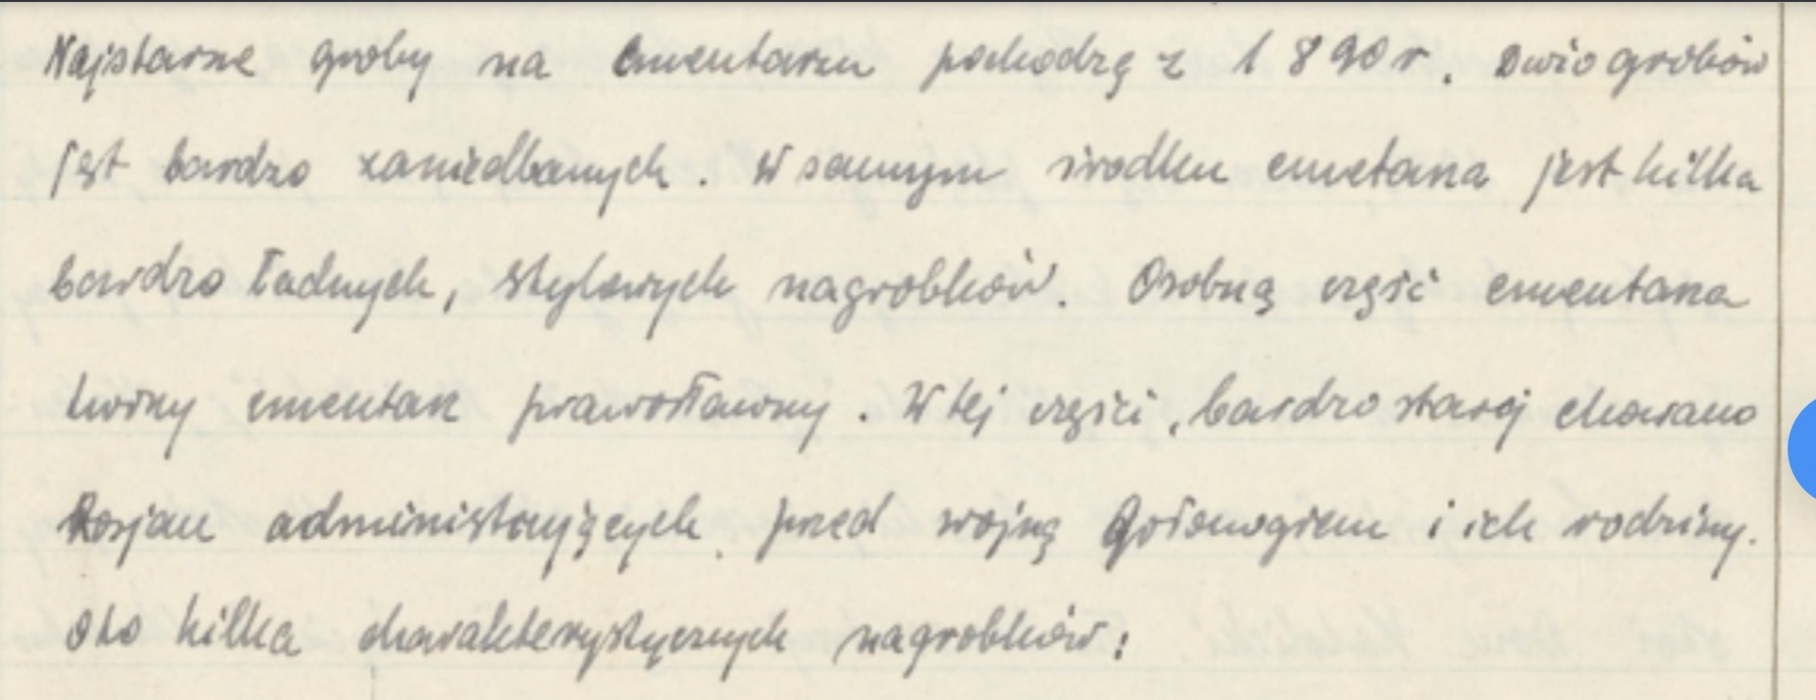 Najstarsze groby na cmentarzu pochodzą z 1890 r. Dużo grobów
jest bardzo zaniedbanych. W samym środku cmetarza jest kilka
bardzo ładnych, stylowych nagrobków. Osobną część cmentarza
tworzy cmentarz prawosławny. W tej części, bardzo starej chowano
Rosjan administrujących przed wojną Gołonogiem i ich rodziny.
Oto kilka charakterystycznych nagrobków: